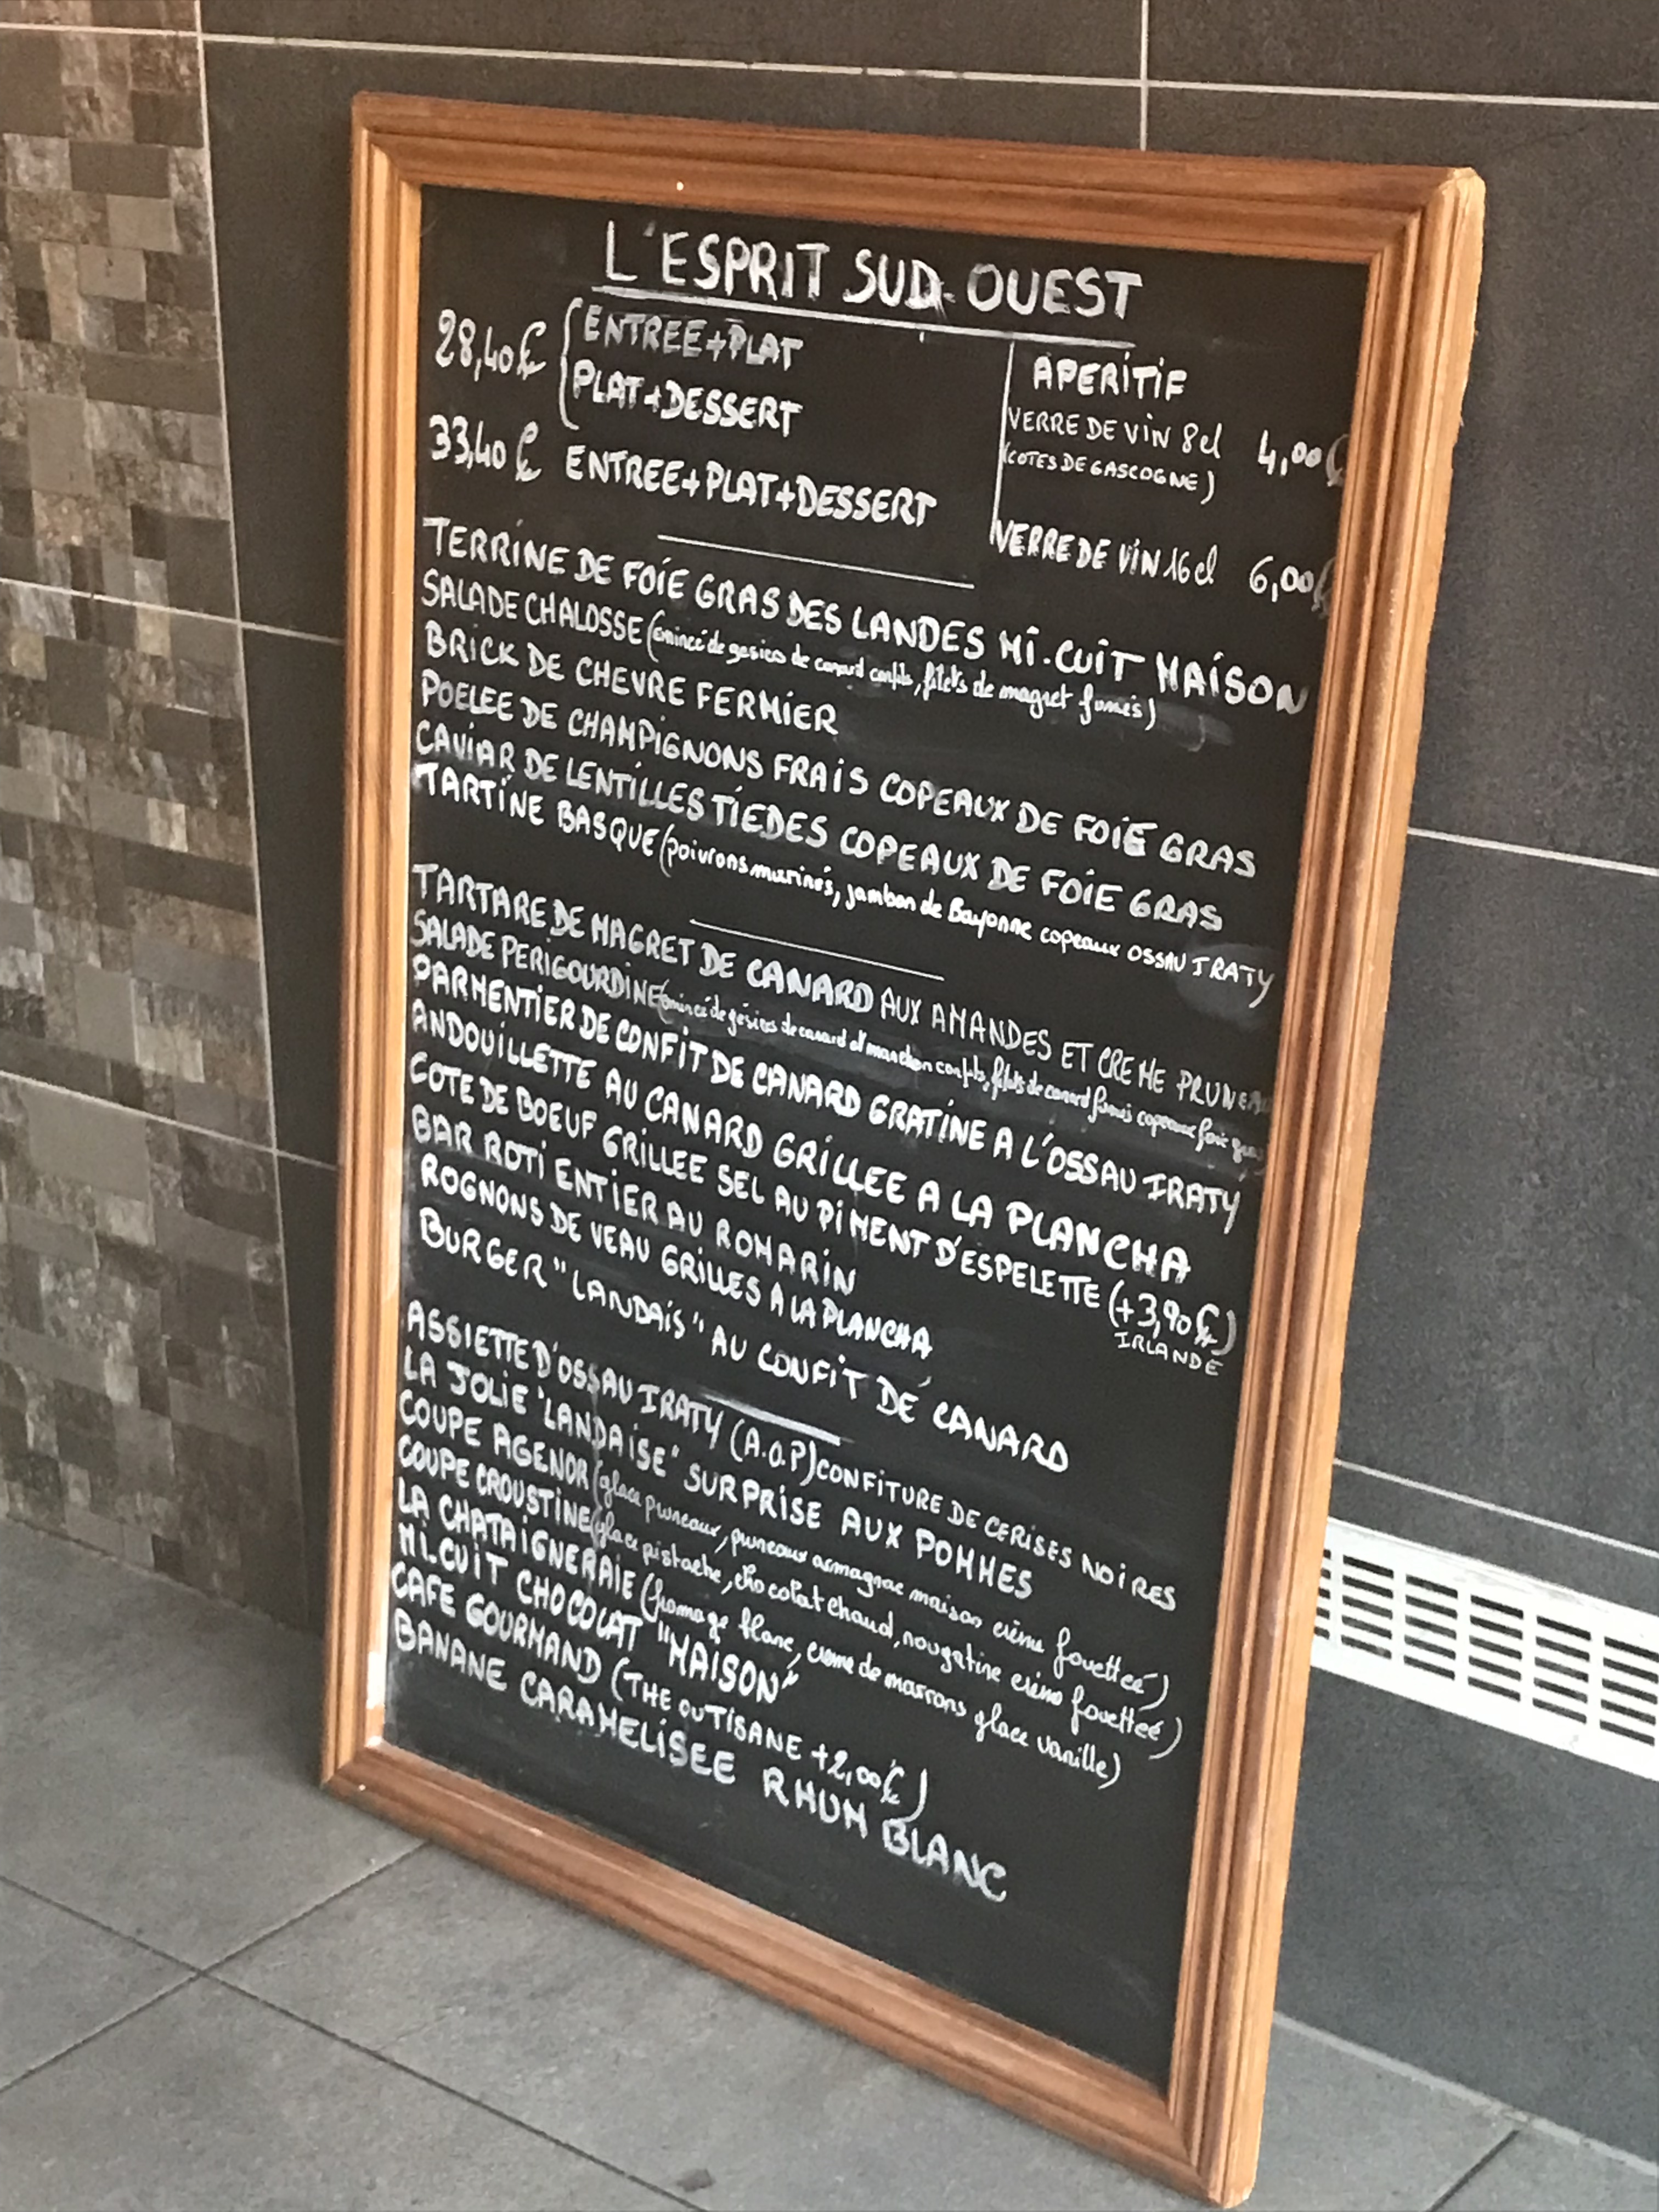 L'ESPRIT SUD-OUEST
28,40€ { ENTREE+PLAT
PLAT+DESSERT
33,40€ ENTREE+PLAT+DESSERT
APERITIF
VERRE DE VIN 8cl 4,00€
(COTES DE GASCOGNE)
VERRE DE VIN 16cl 6,00€
TERRINE DE FOIE GRAS DES LANDES MI-CUIT MAISON
SALADE CHALOSSE (émincé de gesiers de canard confits, filets de magret fumés)
BRICK DE CHEVRE FERMIER
POELEE DE CHAMPIGNONS FRAIS COPEAUX DE FOIE GRAS
CAVIAR DE LENTILLES TIEDES COPEAUX DE FOIE GRAS
TARTINE BASQUE (poivrons marinés, jambon de Bayonne copeaux OSSAU IRATY
TARTARE DE MAGRET DE CANARD AUX AMANDES ET CREME PRUNEAU
SALADE PERIGOURDINE (émincé de gésiers de canard et manchon confits, filets de canard fumés copeaux foie gras)
PARMENTIER DE CONFIT DE CANARD GRATINE A L'OSSAU IRATY
ANDOUILLETTE AU CANARD GRILLEE A LA PLANCHA
COTE DE BOEUF GRILLEE SEL AU PIMENT D'ESPELETTE (+3,90€)
IRLANDE
BAR ROTI ENTIER AU ROMARIN
ROGNONS DE VEAU GRILLES A LA PLANCHA
BURGER "LANDAIS" AU CONFIT DE CANARD
ASSIETTE D'OSSAU IRATY (A.O.P) CONFITURE DE CERISES NOIRES
LA JOLIE "LANDAISE" SURPRISE AUX POMMES
COUPE AGENOR (glace pruneaux, pruneaux armagnac maison crème fouetteé)
COUPE CROUSTINE (glace pistache, chocolat chaud, nougatine crème fouetteé)
LA CHATAIGNERAIE (fromage blanc, creme de marrons glace vanille)
MI-CUIT CHOCOLAT "MAISON"
CAFE GOURMAND (THE OU TISANE +2,00€)
BANANE CARAMELISEE RHUM BLANC